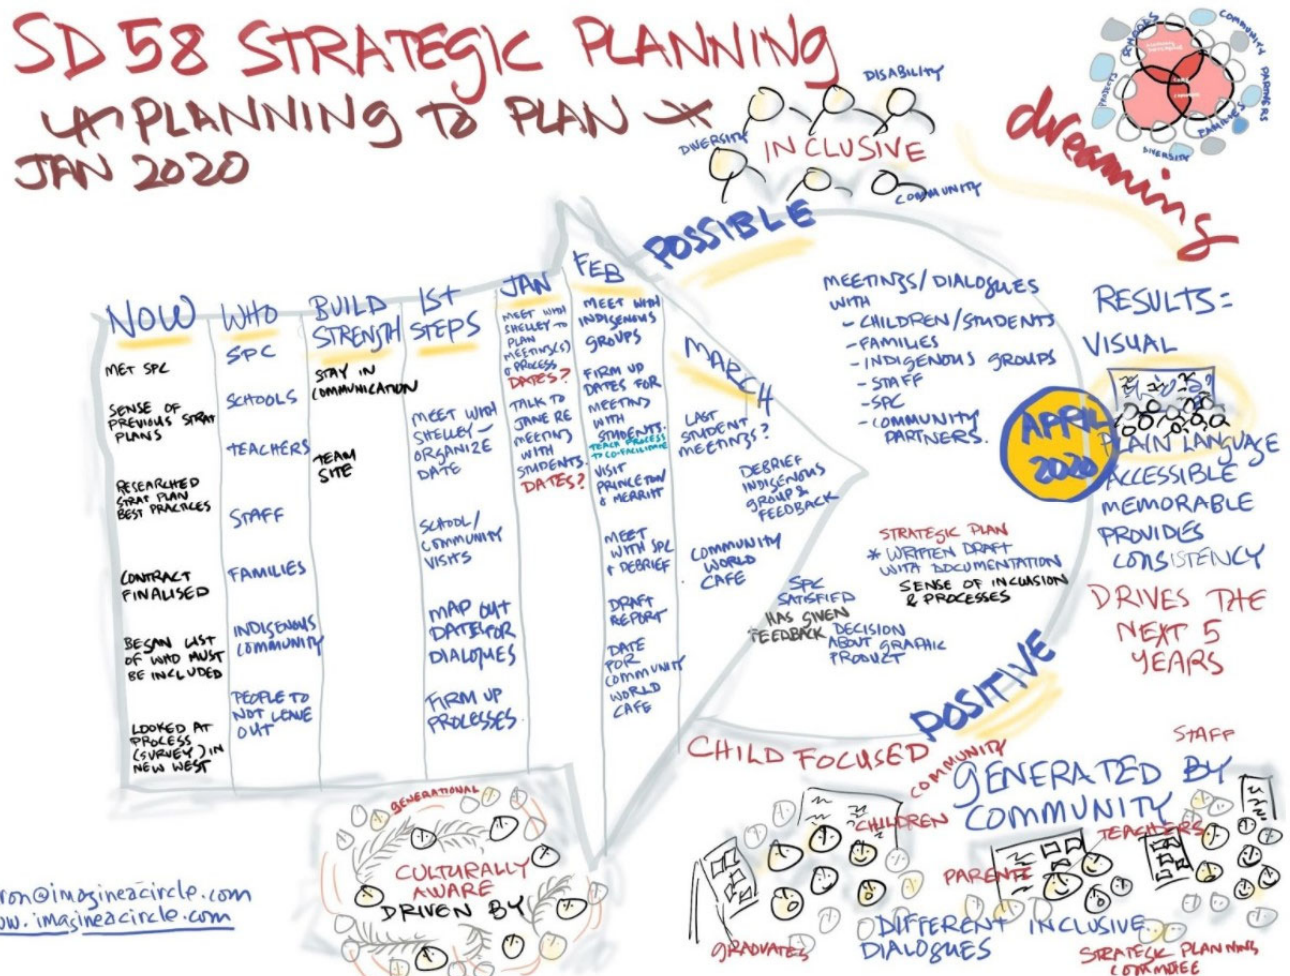 SD 58 STRATEGIC PLANNING
PLANNING TO PLAN
JAN 2020
DISABILITY
DIVERSITY
INCLUSIVE
COMMUNITY
SCHOOLS
COMMUNITY PARTNERS
PROJECTS
FAMILIES
DIVERSITY
dreaming
POSSIBLE
NOW
MET SPC
SENSE OF
PREVIOUS STRAT
PLANS
RESEARCHED
STRAT PLAN
BEST PRACTICES
CONTRACT
FINALISED
BEGAN LIST
OF WHO MUST
BE INCLUDED
LOOKED AT
PROCESS
(SURVEY) IN
NEW WEST
WHO
SPC
SCHOOLS
TEACHERS
STAFF
FAMILIES
INDIGENOUS
COMMUNITY
PEOPLE TO
NOT LEAVE
OUT
BUILD
STRENGTH
STAY IN
COMMUNICATION
TEAM
SITE
1ST
STEPS
MEET WITH
SHELLEY -
ORGANIZE
DATE
SCHOOL/
COMMUNITY
VISITS
MAP OUT
DATE FOR
DIALOGUES
FIRM UP
PROCESSES
JAN
MEET WITH
SHELLEY TO
PLAN
MEETING(S)
& PROCESS
DATES?
TALK TO
JANE RE
MEETING
WITH
STUDENTS.
DATES?
FEB
MEET WITH
INDIGENOUS
GROUPS
FIRM UP
DATES FOR
MEETING
WITH
STUDENTS.
TEACH PROCESS
TO CO-FACILITATE
VISIT
PRINCETON
& MERRITT
MEET
WITH SPC
& DEBRIEF
DRAFT
REPORT
DATE
FOR
COMMUNITY
WORLD
CAFE
MARCH
LAST
STUDENT
MEETINGS?
DEBRIEF
INDIGENOUS
GROUP &
FEEDBACK
COMMUNITY
WORLD
CAFE
MEETINGS/DIALOGUES
WITH
- CHILDREN/STUDENTS
- FAMILIES
- INDIGENOUS GROUPS
- STAFF
- SPC
- COMMUNITY
PARTNERS.
STRATEGIC PLAN
* WRITTEN DRAFT
WITH DOCUMENTATION
SENSE OF INCLUSION
& PROCESSES
SPC
SATISFIED
HAS GIVEN
FEEDBACK
DECISION
ABOUT GRAPHIC
PRODUCT
APRIL
2020
POSITIVE
RESULTS =
VISUAL
PLAIN LANGUAGE
ACCESSIBLE
MEMORABLE
PROVIDES
CONSISTENCY
DRIVES THE
NEXT 5
YEARS
GENERATIONAL
CULTURALLY
AWARE
DRIVEN BY
CHILD FOCUSED
COMMUNITY
STAFF
GENERATED BY
COMMUNITY
CHILDREN
TEACHERS
PARENTS
GRADUATES
DIFFERENT INCLUSIVE
DIALOGUES
STRATEGIC PLANNING
COMMITTEE
ron@imagineacircle.com
ww.imagineacircle.com